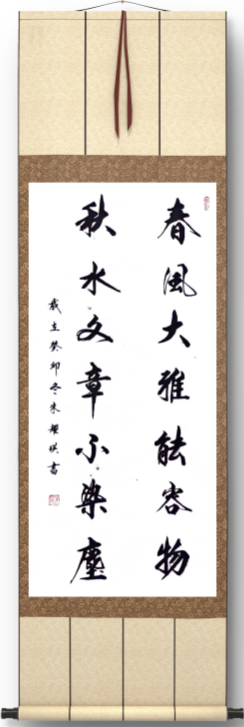 春風大雅能容物
秋水文章不染塵
歲在癸卯冬朱耀煐書